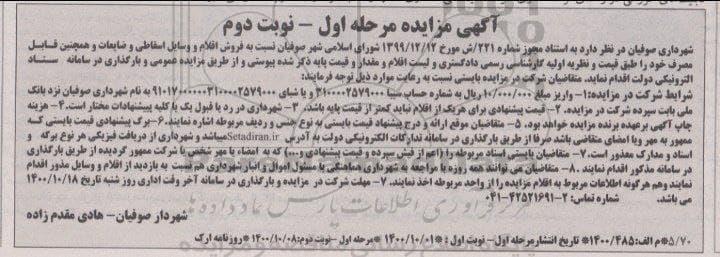 آگهی مزایده مرحله اول – نوبت دوم
شهرداری صوفیان در نظر دارد به استناد مجوز شماره ۲۲۱/ش مورخ ۱۳۹۹/۱۲/۱۲ شورای اسلامی شهر صوفیان نسبت به فروش اقلام و وسایل اسقاطی و ضایعات و همچنین قابل
مصرف خود را طبق قیمت و نظریه اولیه کارشناسی رسمی دادگستری و لیست اقلام و مقدار و قیمت پایه ذکر شده پیوستی و از طریق مزایده عمومی و بارگذاری در سامانه ستاد
الکترونیکی دولت اقدام نماید. متقاضیان شرکت در مزایده بایستی نسبت به رعایت موارد ذیل توجه فرمایند:
شرایط شرکت در مزایده: ۱- واریز مبلغ ۱۰/۰۰۰/۰۰۰ ریال به شماره حساب سیبا ۳۱۰۰۰۰۲۵۷۹۰۰۰ و یا شبای به نام شهرداری صوفیان نزد بانک
ملی بابت سپرده شرکت در مزایده. ۲- قیمت پیشنهادی برای هر یک از اقلام نباید کمتر از قیمت پایه باشد. ۳- شهرداری در رد یا قبول یک یا کلیه پیشنهادات مختار است. ۴- هزینه
چاپ آگهی برعهده برنده مزایده خواهد بود. ۵- متقاضیان موقع ارائه و درج پیشنهاد قیمت بایستی به نوع جنس و ردیف مربوطه اشاره نمایند. ۶- برگ پیشنهادی قیمت بایستی که
ممهور به مهر ویا امضای متقاضی باشد صرفا از طریق بارگذاری در سامانه تدارکات الکترونیکی دولت به آدرس Setadiran.ir میباشد و شهرداری از دریافت فیزیکی هر نوع برگه و
اسناد و مدارک معذور است. ۷- متقاضیان بایستی اسناد مربوطه را (اعم از فیش سپرده و قیمت پیشنهادی و...) که به امضاء یا مهر شخص یا شرکت ممهور گردیده از طریق بارگذاری
در سامانه مذکور اقدام نمایند. ۸- متقاضیان می توانند همه روزه با مراجعه به شهرداری هماهنگی با مسئول اموال و انبار شهرداری هم نسبت به بازدید از اقلام و وسایل مذور اقدام
نمایند وهم هرگونه اطلاعات مربوط به اقلام مزایده را از واحد مربوطه اخذ نمایند. ۷- مهلت شرکت در مزایده و بارگذاری در سامانه آخر وقت اداری روز شنبه تاریخ ۱۴۰۰/۱۰/۱۸
می باشد. شماره تماس: ۲-۴۲۵۲۱۶۹۱-۰۴۱
شهردار صوفیان- هادی مقدم زاده
۵/۷۰ *م الف: ۱۴۰۰/۴۸۵* تاریخ انتشار مرحله اول - نوبت اول: ۱۴۰۰/۱۰/۰۱ *مرحله اول -نوبت دوم: ۱۴۰۰/۱۰/۰۸ *روزنامه ارک